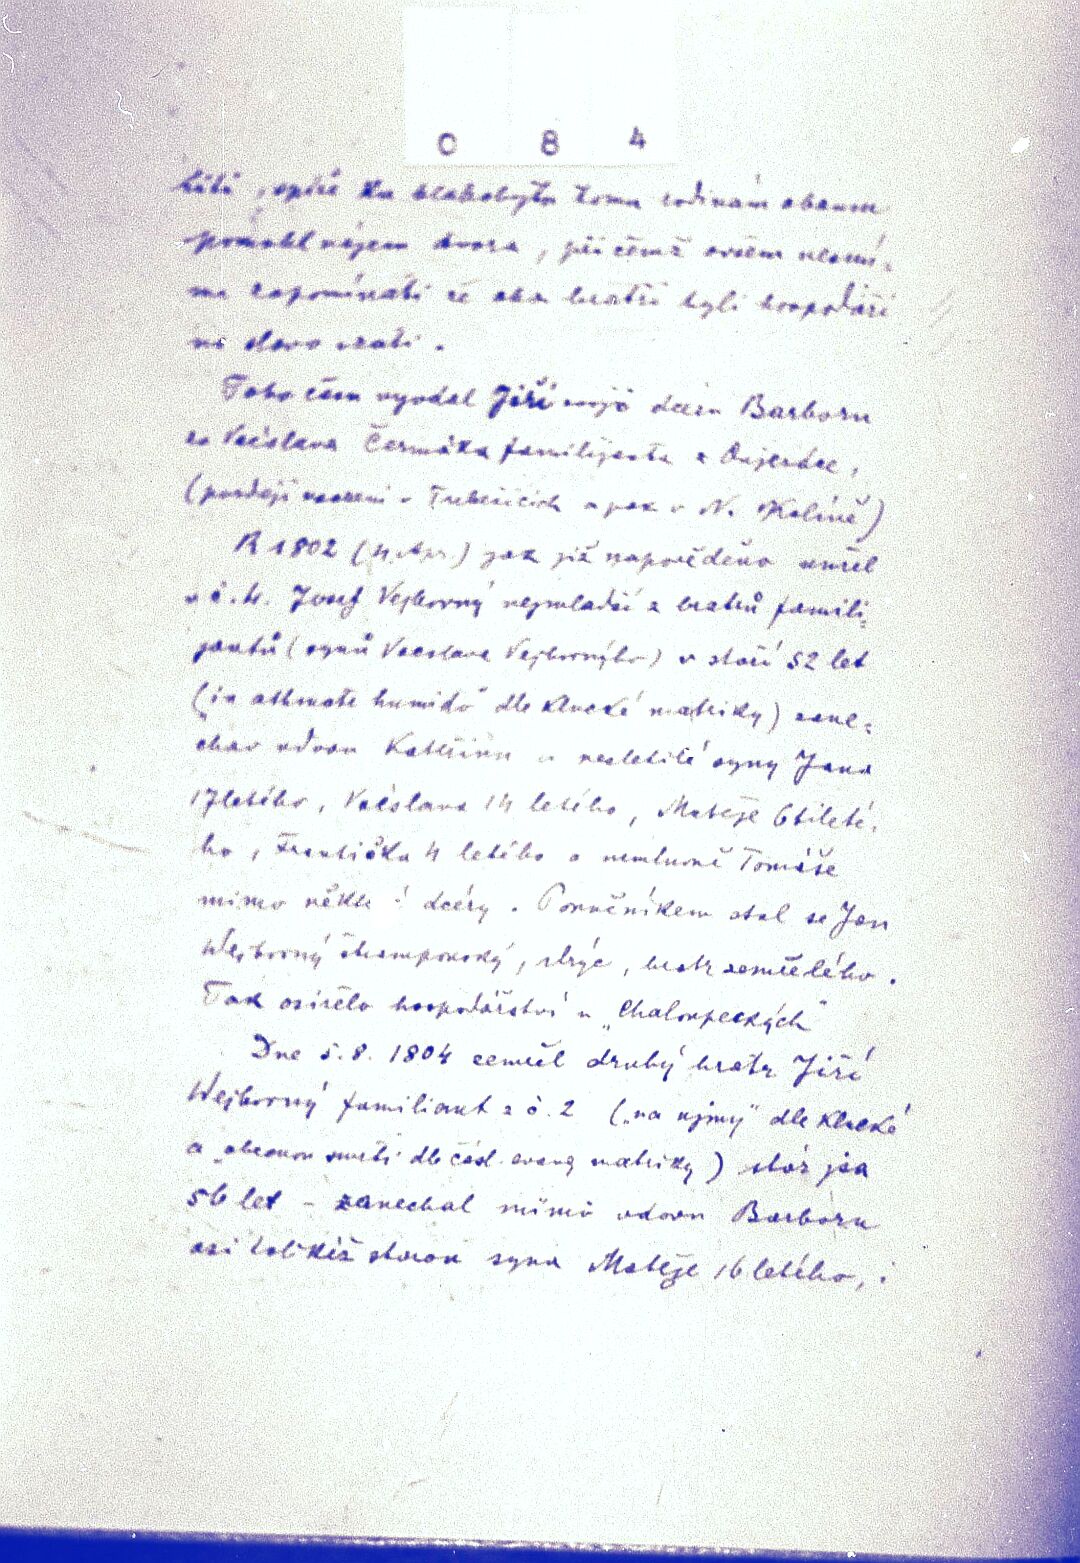 0 8 4
k blahobytu tomu rodinám oboum
pomohl nájem dvora, při čemž ovšem nesmí-
me zapomínati že oba bratři byli hospodáři
na slovo vzatí.
Toho času vyvdal Jiří svoji dceru Barboru
za Václava Čermáka familijanta z
(později v Trebešicích a pak v N. Kolíně)
R 1802 (4. Apr.) jak již napověděno umřel
v č. 4. Josef Vejborný nejmladší z bratrů famili-
jantů (synů Vacslava Vejborného) v stáří 52 let
("in asthmate humido" dle matriky) zane-
chav vdovu Kateřinu a nezletilé syny Jana
17letého, Václava 14 letého, Matěje 6tileté-
ho, Františka 4 letého a nemluvně Tomáše
mimo někte dcéry. Poručníkem stal se Jan
Wejborný strýc, bratr zemřelého.
Tak osiřelo hospodářství u "Chaloupeckých"
Dne 5. 8. 1804 zemřel druhý bratr Jiří
Wejborný familiant z č. 2 ("na ujmy" dle
a smrti dle čásl. evang matriky) stár jsa
56 let – zanechal mimo vdovu Barboru
asi syna Matěje 16letého, i